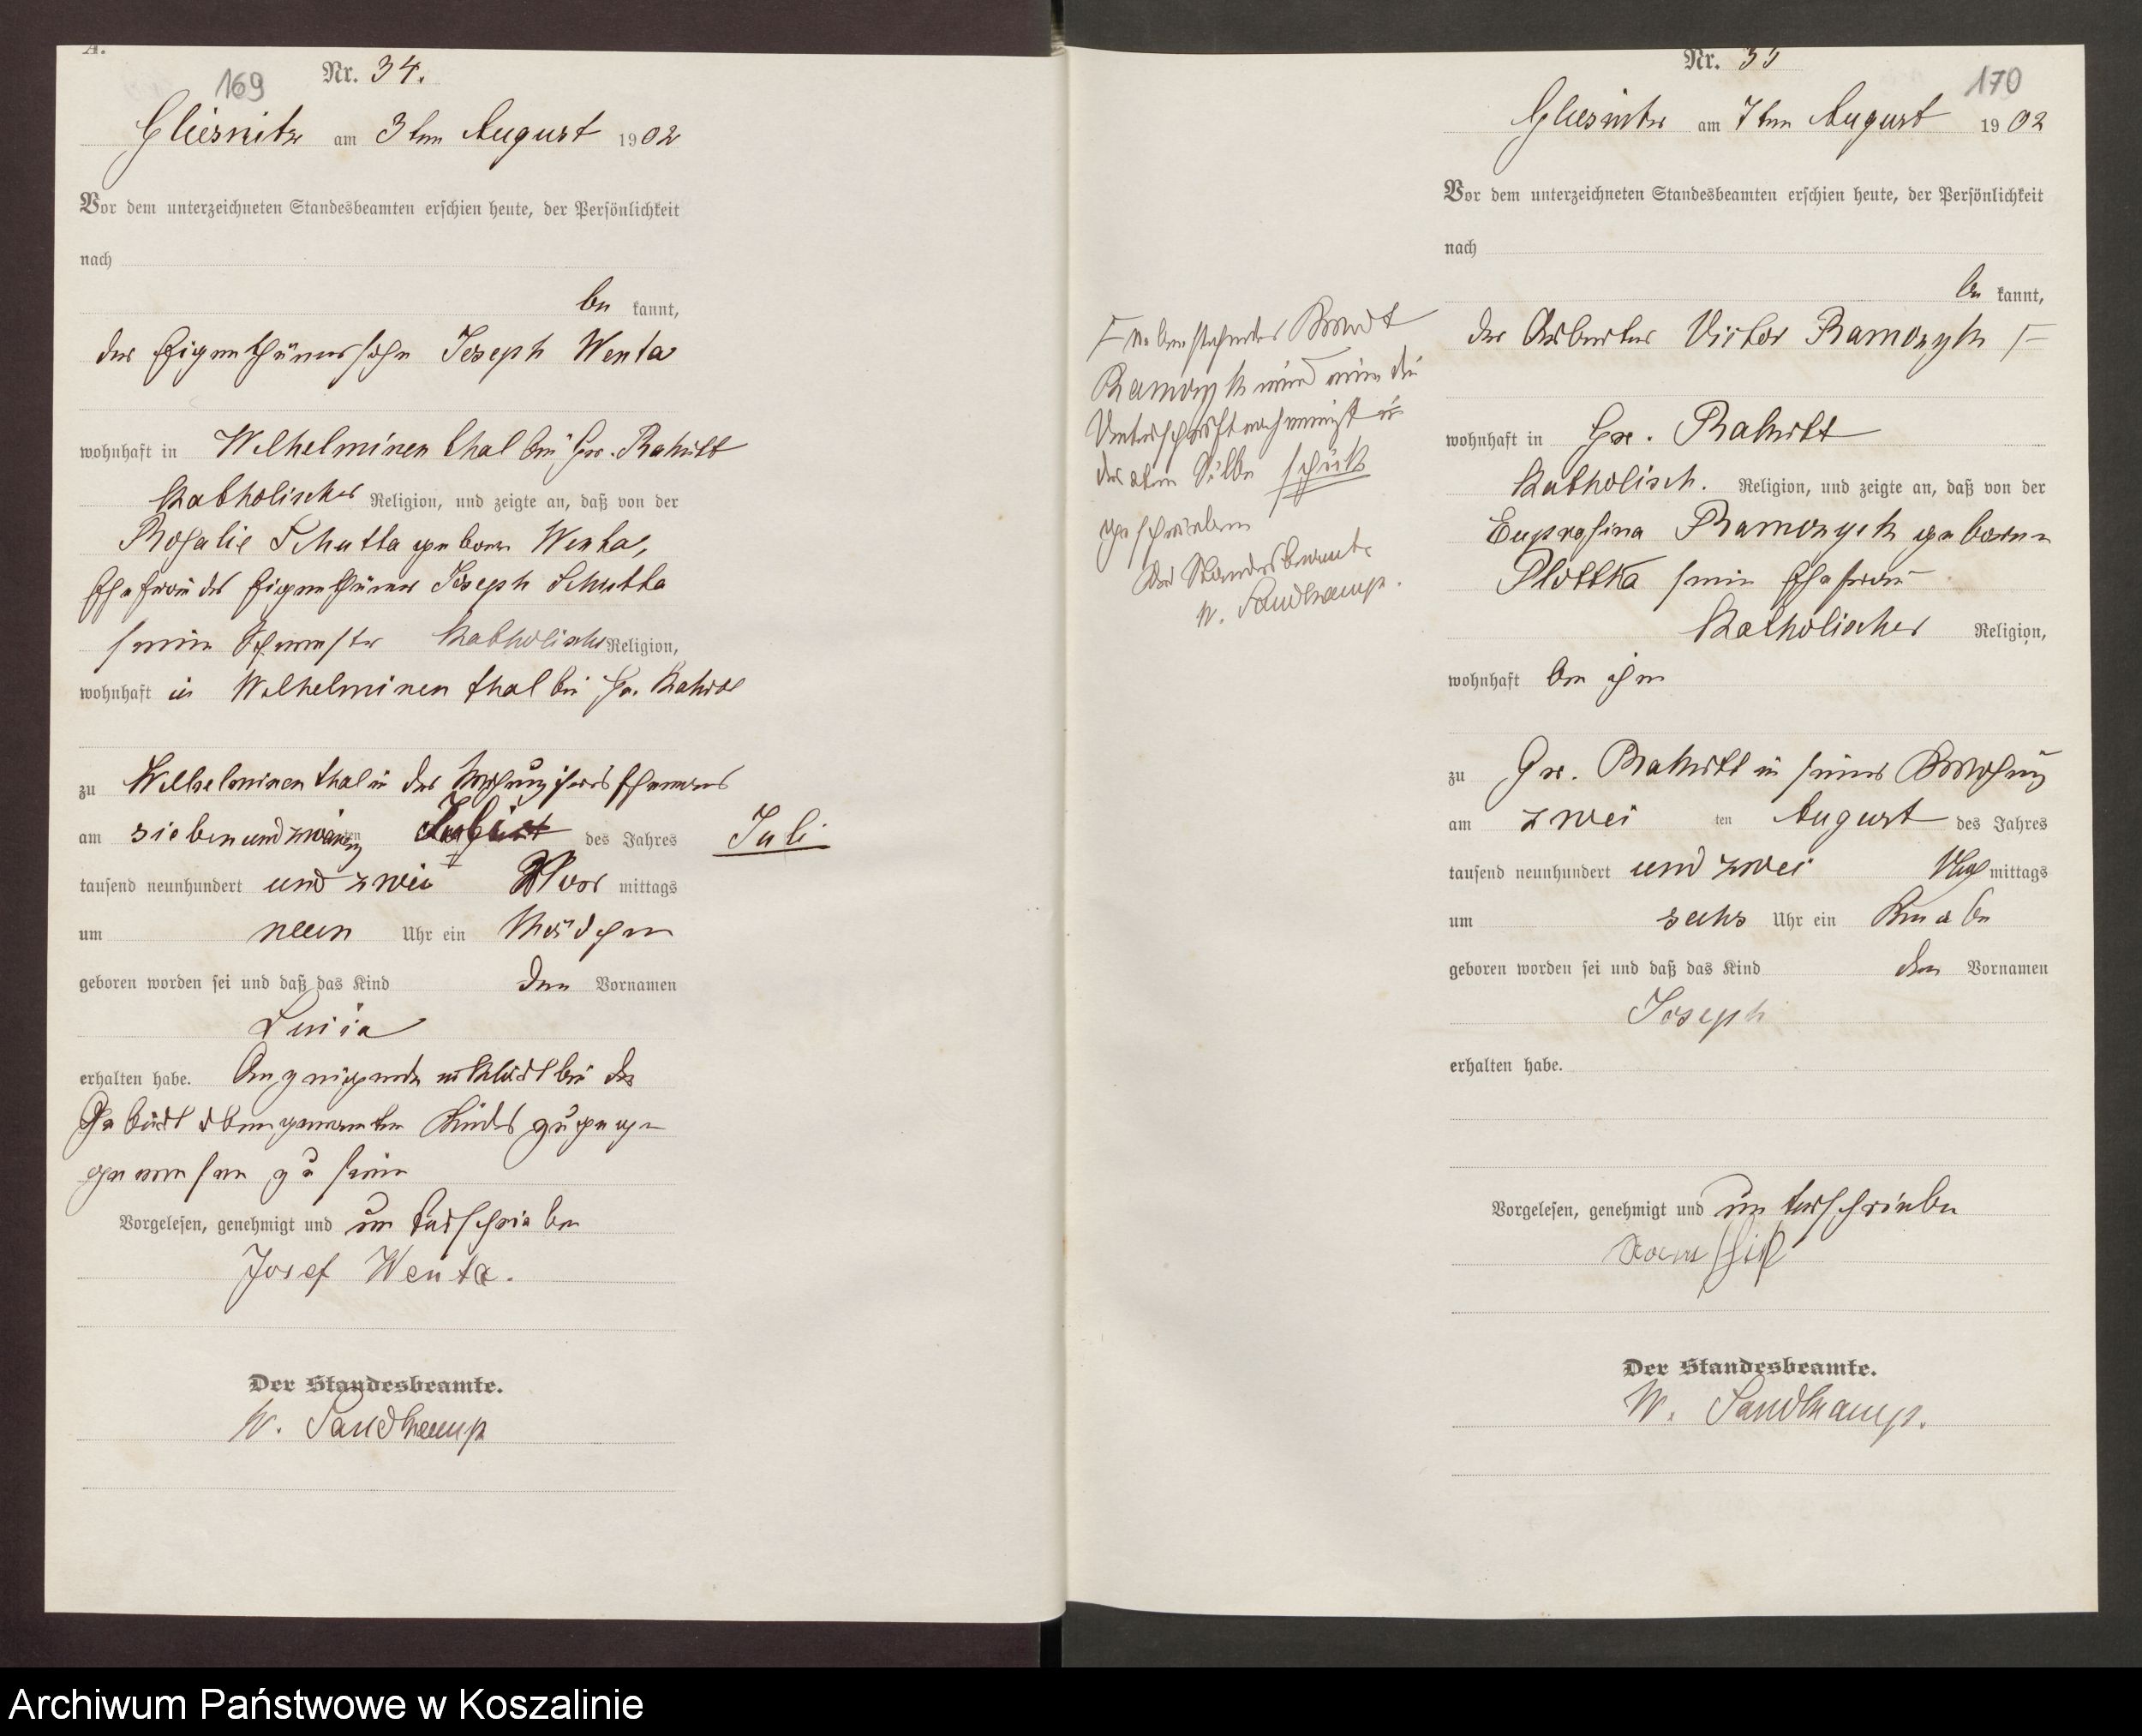 A.
169
Nr. 34.
Gliesnitz am 3ten August 1902
Vor dem unterzeichneten Standesbeamten erschien heute, der Persönlichkeit
nach
be kannt,
der Eigenthümersohn Joseph Wenta
wohnhaft in Wilhelminenthal bei Gr.
katholischer Religion, und zeigte an, daß von der
Rosalie Schutta geboren Wenta,
Ehefrau des Eigenthümer Joseph Schutta
seine Schwester katholischer Religion,
wohnhaft in Wilhelminenthal bei Gr.
zu Wilhelminenthal in der Wohnung ihres Ehemanns
am siebenundzwanzig ten des Jahres Juli
tausend neunhundert und zwei Vor mittags
um neun Uhr ein Mädchen
geboren worden sei und daß das Kind den Vornamen
erhalten habe. Anzeigende erklärt bei der
Geburt obengenannten Kindes zugegen
gewesen zu sein
Vorgelesen, genehmigt und unterschrieben
Josef Wenta.
Der Standesbeamte.
W. Sandkamp
170
Nr. 35
Gliesnitz am 7ten August 1902
Vor dem unterzeichneten Standesbeamten erschien heute, der Persönlichkeit
nach
be kannt,
der Arbeiter Victor Ramczyk
wohnhaft in Gr.
katholisch. Religion, und zeigte an, daß von der
Euprosina Ramczyck geboren
Plottka seine Ehefrau
katholischer Religion,
wohnhaft bei ihm
zu Gr. in seiner Wohnung
am zwei ten August des Jahres
tausend neunhundert und zwei Nach mittags
um sechs Uhr ein Knabe
geboren worden sei und daß das Kind den Vornamen
Joseph
erhalten habe.
Vorgelesen, genehmigt und unterschrieben
Der Standesbeamte.
W. Sandkamp.
nebenstehendes Wort
Ramczyk wird wie die
Unterschrift
der Silbe
geschrieben
Der Standesbeamte
W. Sandkamp.
Archiwum Państwowe w Koszalinie